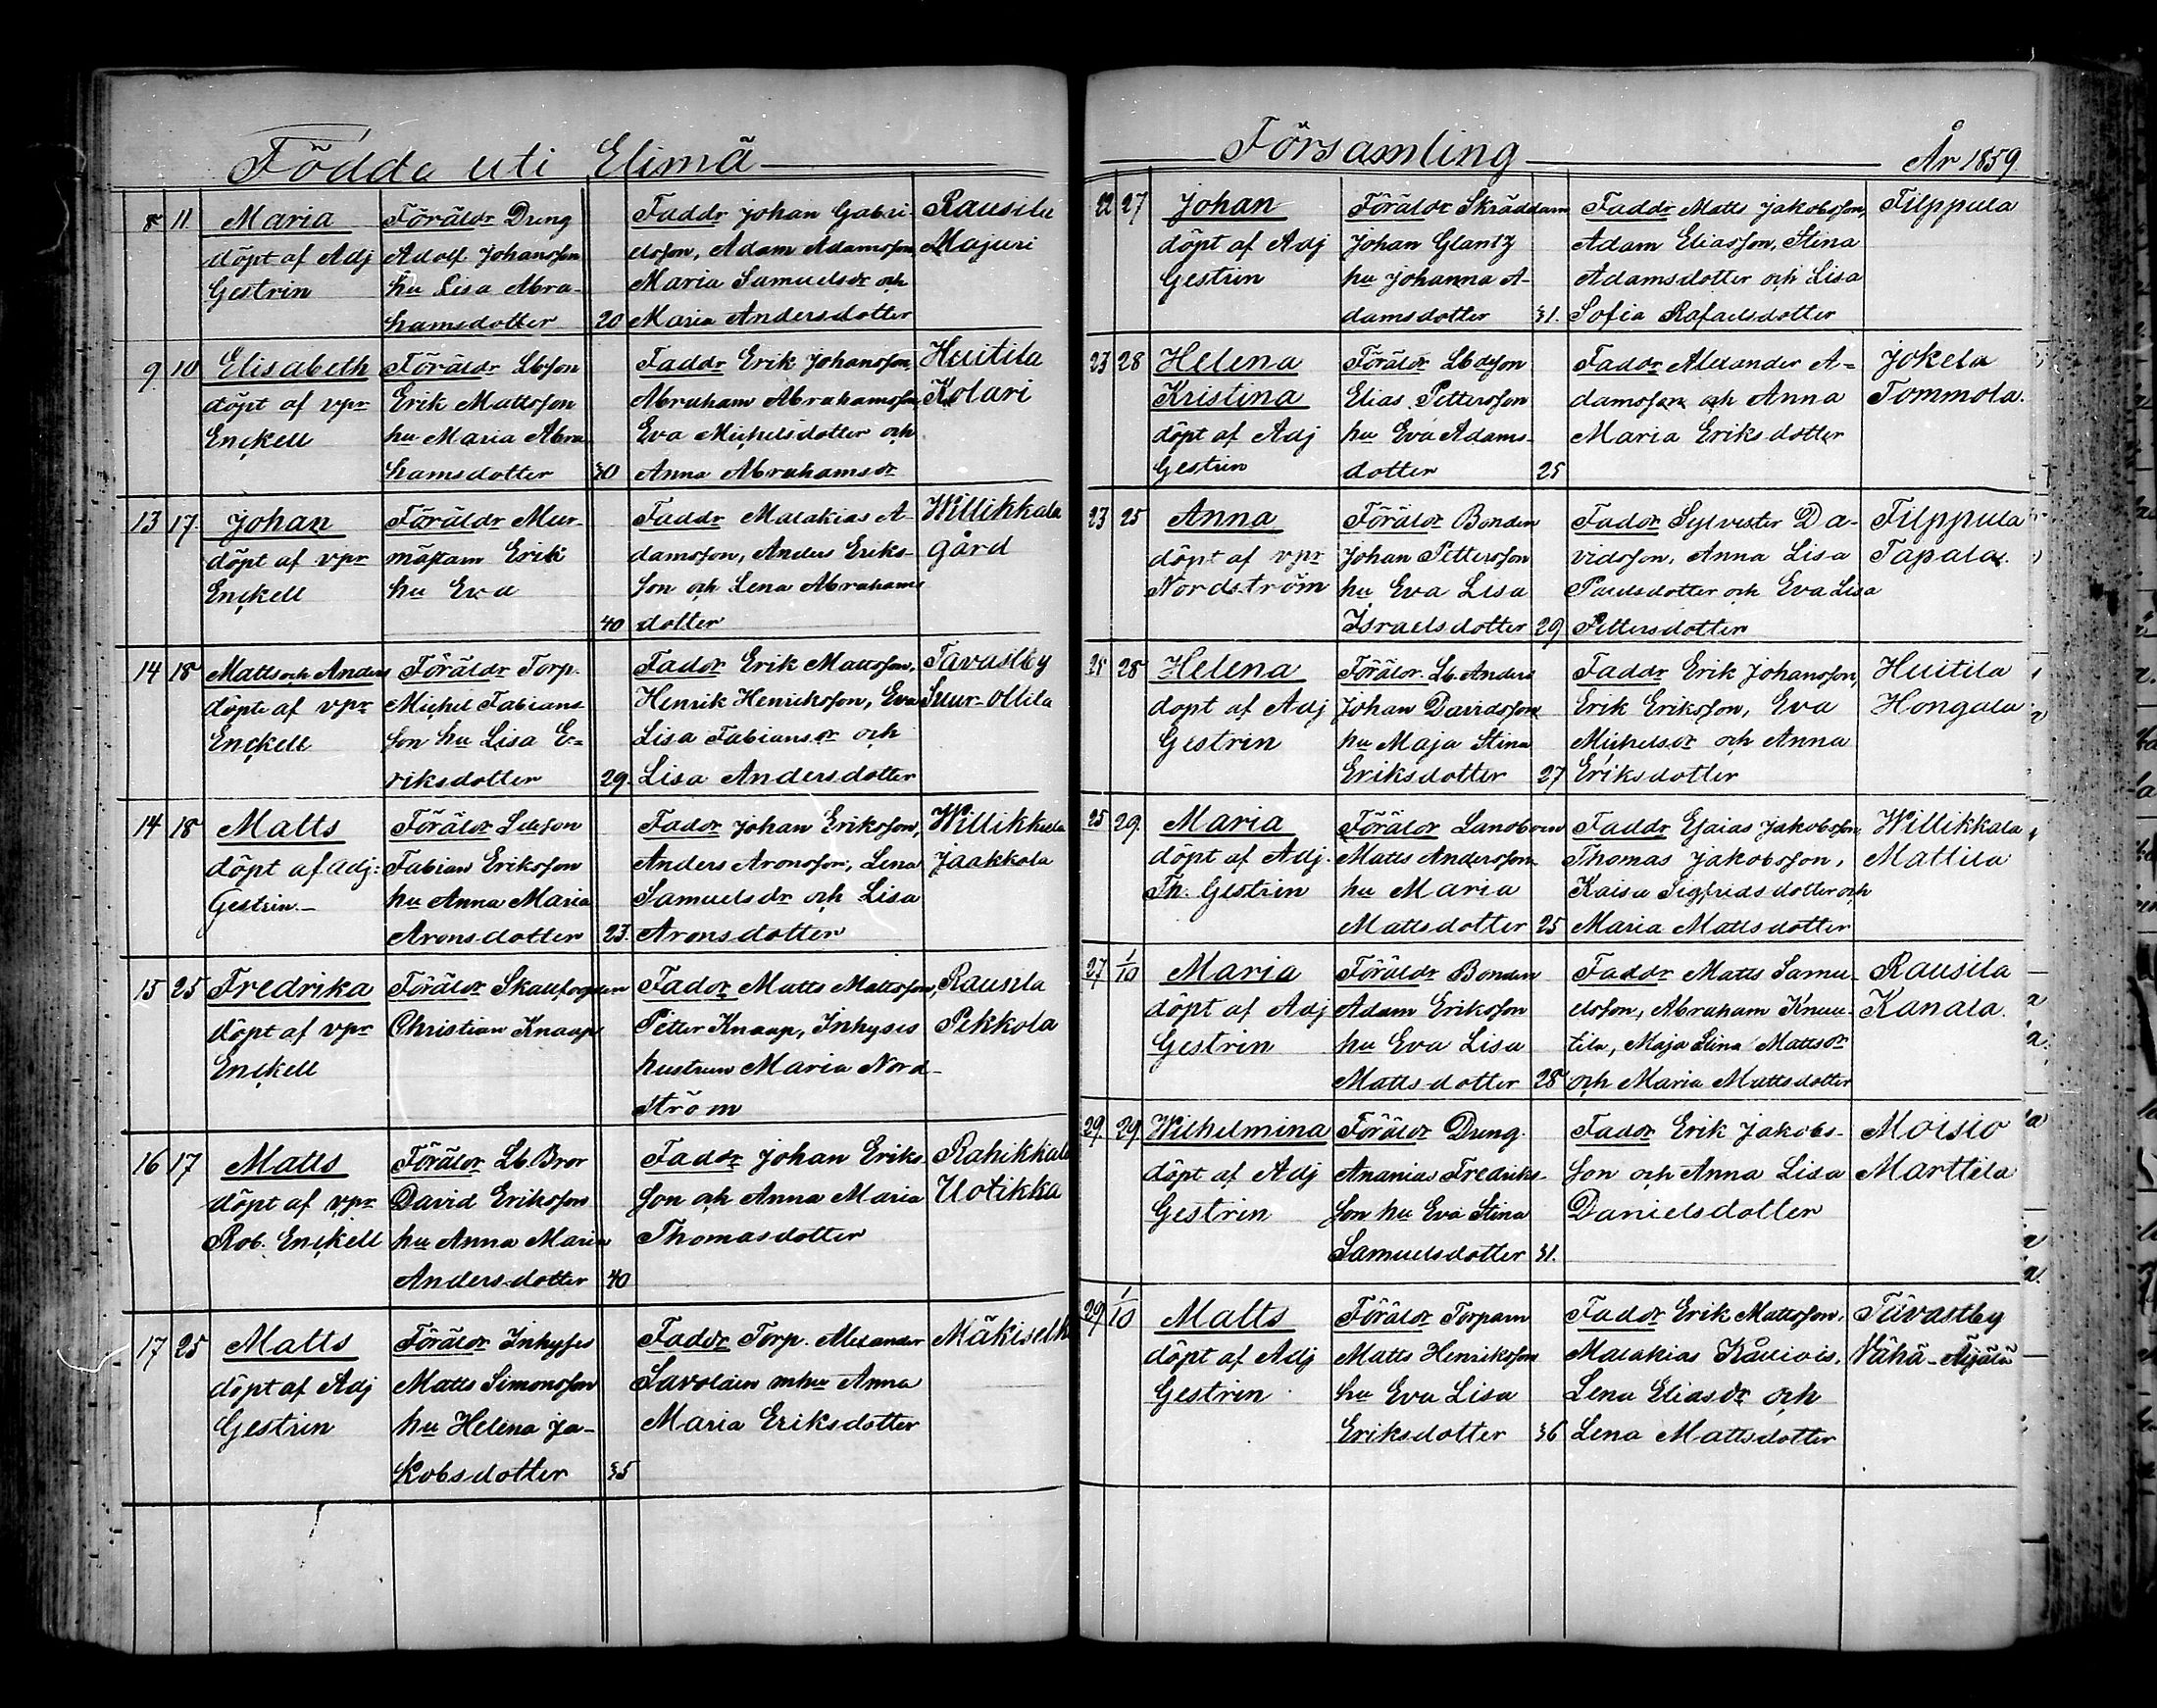 Födde uti Elimä
8 11 Maria Föräldr Dreng Faddr Johan Gabri- Rausila
döpt af Adj Adolf Johansson elsson, Adam Adamsson Majuri
Gestrin hu Lisa Abra- Maria Samuelsdr och
hamsdotter 20 Maria Andersdotter
9 10 Elisabeth Föräldr Lbson Faddr Erik Johansson Huitila
döpt af vpr Erik Mattsson Abraham Abrahamsson Kolari
Enckell hu Maria Abra Eva Michelsdotter och
hamsdotter 30 Anna Abrahamsdr
13 17. Johan Föräldr Mur- Faddr Malakias A- Willikkala
döpt af vpr mästarn Erik damsson, Anders Eriks- gård
Enckell hu Eva son och Lena Abrahams
40 dotter
14 18 Matts och Anders Föräldr Torp. Faddr Erik Mattsson, Tavastby
döpte af vpr Michel Fabians Henrik Henriksson, Eva Suur-Ollila
Enckell son hu Lisa E= Lisa Fabiansdr och
riksdotter 29. Lisa Andersdotter
14 18 Matts Föräldr Ldsson Faddr Johan Eriksson, Willikkala
döpt af Adj: Fabian Eriksson Anders Aronsson, Lena Jaakkola
Gestrin.- hu Anna Maria Samuelsdr och Lisa
Aronsdotter 23. Aronsdotter
15 25 Fredrika Föräldr Skaufogden Faddr Matts Mattsson, Rausila
döpt af vpr Christian Knaap Petter Knaap, Inhyses Pekkola
Enckell hustrun Maria Nord-
ström
16 17 Matts Föräldr Lb. Bror Faddr Johan Eriks Rahikkala
döpt af vpr David Eriksson son och Anna Maria Uotikka
Rob. Enckell hu Anna Maria Thomasdotter
Andersdotter 40
17 25 Matts Föräldr Inhyses Faddr Torp. Alexander Mäkiselk
döpt af Adj Matts Simonsson Savolain mhu Anna
Gestrin hu Helena Ja- Maria Eriksdotter
kobsdotter 35
Församling År 1859.
22 27 Johan Föräldr Skräddarn Faddr Matts Jakobsson, Filppula
döpt af Adj Johan Glantz Adam Eliasson, Stina
Gestrin hu Johanna A- Adamsdotter och Lisa
damsdotter 31. Sofia Rafaelsdotter
23 28 Helena Föräldr Lbdsson Faddr Alexander A= Jokela
Kristina Elias Pettersson damsson och Anna Tommola.
döpt af Adj hu Eva Adams- Maria Eriksdotter
Gestrin dotter 25
23 25 Anna Föräldr Bonden Faddr Sylvester Da- Filppula
döpt af vpr Johan Pettersson vidsson, Anna Lisa Tapala.
Nordström hu Eva Lisa Paulsdotter och Eva Lisa
Israelsdotter 29 Pettersdotter
25 28 Helena Föräldr. Lb. Anders Faddr Erik Johansson, Huitila
döpt af Adj Johan Davidsson Erik Eriksson, Eva Hongala
Gestrin hu Maja Stina Michelsdr och Anna
Eriksdotter 27 Eriksdotter
25 29. Maria Föräldr Landbon Faddr Esaias Jakobsson, Willikkala
döpt af Adj. Matts Andersson Thomas Jakobsson, Mattila
Th. Gestrin hu Maria Kaisa Sigfridsdotter och
Mattsdotter 25 Maria Mattsdotter
27 1/10 Maria Föräldr Bonden Faddr Matts Samu- Rausila
döpt af Adj Adam Eriksson elsson, Abraham Knuu- Kanala.
Gestrin hu Eva Lisa tila, Maja Stina Mattsdr
Mattsdotter 28 och Maria Mattsdotter
29. 29 Wilhelmina Föräldr Dreng. Faddr Erik Jakobs- Moisio
döpt af Adj Ananias Fredriks- son och Anna Lisa Marttila
Gestrin son hu Eva Stina Danielsdotter
Samuelsdotter 31.
29 1/10 Matts Föräldr Torparn Faddr Erik Mattsson, Tävastby
döpt af Adj Matts Henriksson Malakias Vähä-Äijälä
Gestrin hu Eva Lisa Lena Eliasdr och
Eriksdotter 36 Lena Mattsdotter